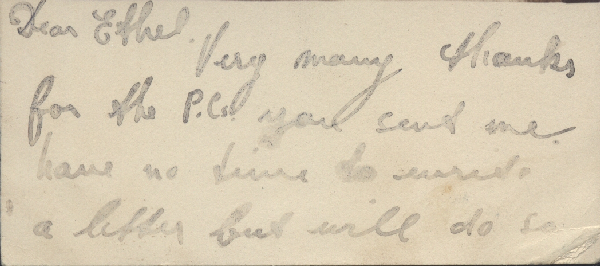 Dear Ethel.
Very many thanks
for the P.C. you sent me.
have no time to write
a letter but will do so